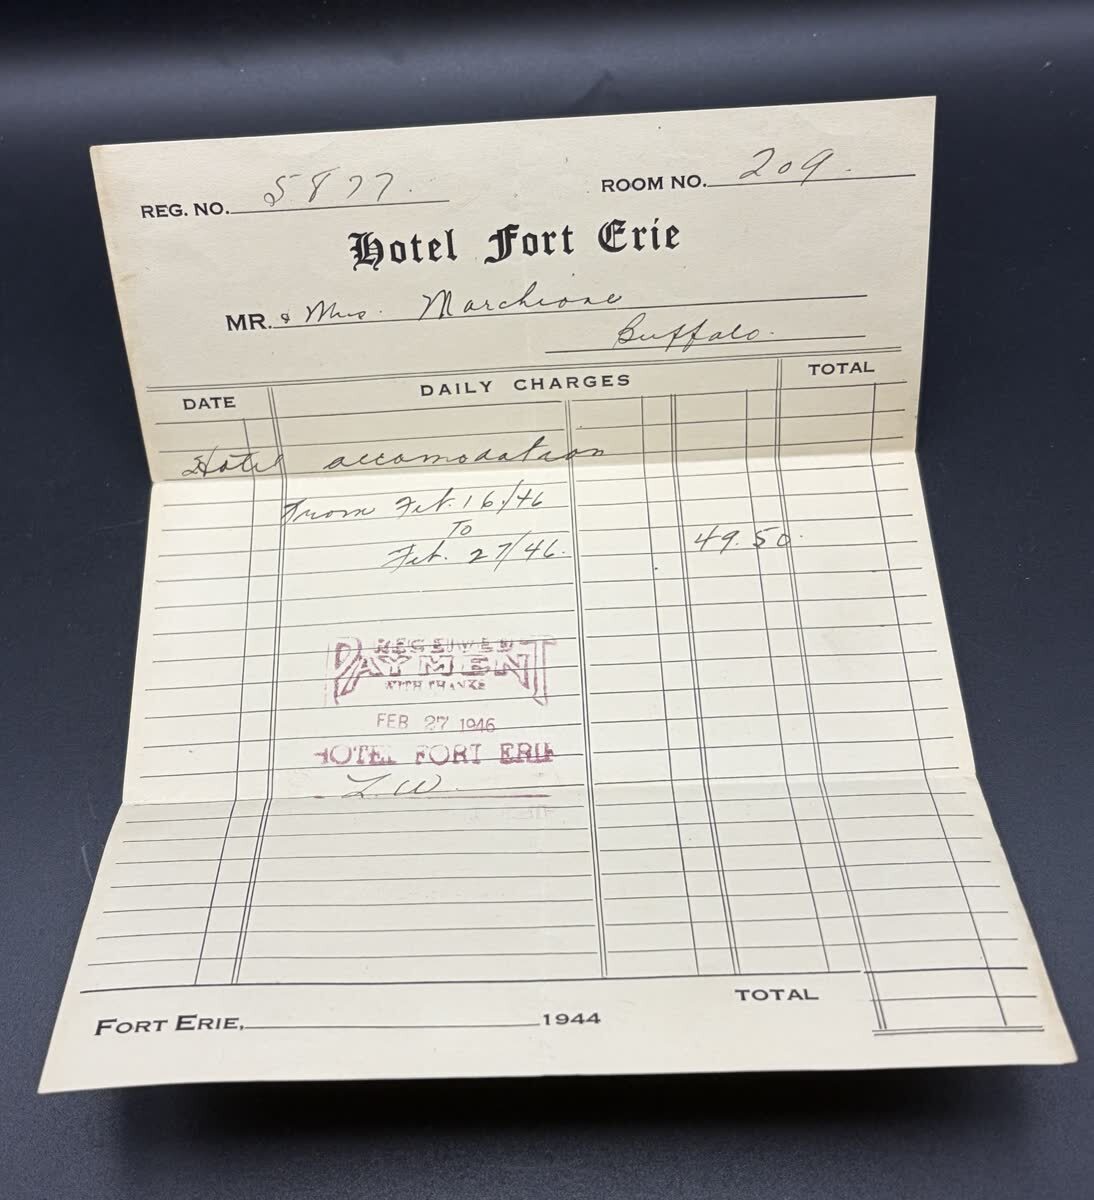 REG. NO. 5877. ROOM NO. 209.
Hotel Fort Erie
MR. & Mrs. Marchione
Buffalo.
DATE DAILY CHARGES TOTAL
Hotel accomodation
From Feb. 16/46
To
Feb. 27/46. 49.50.
RECEIVED
PAYMENT
WITH THANKS
FEB 27 1946
HOTEL FORT ERIE
L.W.
TOTAL
FORT ERIE, 1944